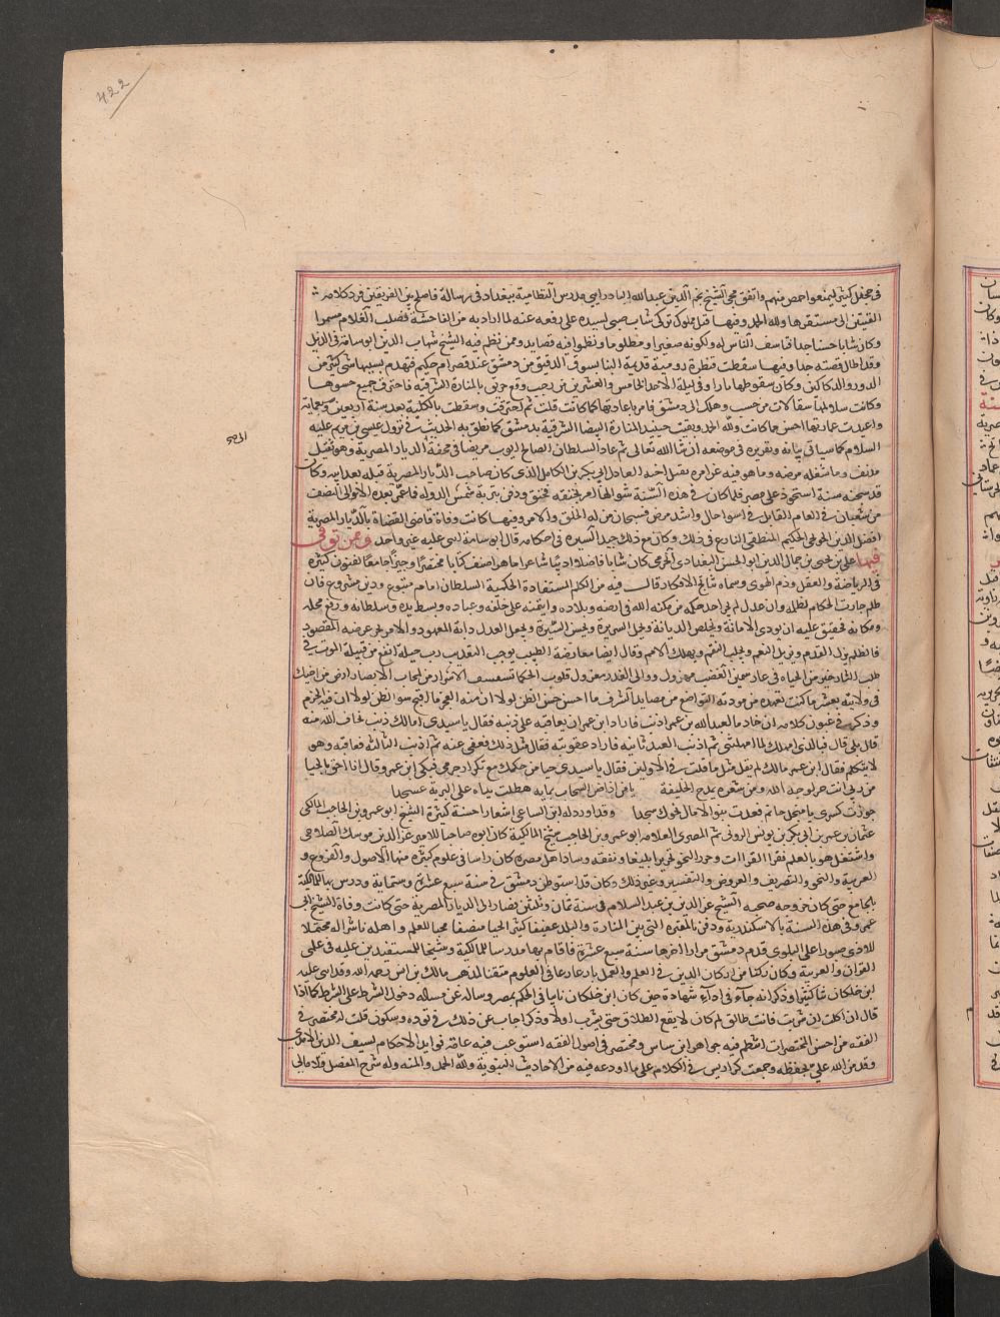 422
في محفل كثير ليمنعوا حمص منهم واتفق مجي الشيخ نجم الدين عبد الله البادرايي مدرس النظامية ببغداد في رسالة فاصلح بين الفريقين فرد كلا من
الفئتين الى مستقرها ولله الحمد وفيها قتل مملوك تركي شاب صبي لسيده على دفعه عنه لما اراد به من الفاحشة فصلب الغلام مسمرا
وكان شابا حسنا جدا فتاسف الناس له ولكونه صغيرا ومظلوما ونظموا فيه قصايد وممن نظم فيه الشيخ شهاب الدين ابو شامة في الذيل
وقد اطال قصته جدا وفيها سقطت قنطرة رومية قديمة البنا بسوق الدقيق من دمشق عند قصر ام حكيم فتهدم بسببها شي كثير من
الدور والدكاكين وكان سقوطها نهارا وفي ليلة الاحد الخامس والعشرين من رجب وقع حريق بالمنارة الشرقية فاحترق جميع حشوها
وكانت سلالمها سقالات من خشب وهلك الى دمشق فامر باعادتها كما كانت قلت ثم احترقت وسقطت بالكلية بعد سنة اربعين وسبعماية
واعيدت عمارتها احسن مما كانت ولله الحمد وبقيت حينيذ المنارة البيضا الشرقية بدمشق كما نطق به الحديث في نزول عيسى بن مريم عليه
السلام كما سياتي بيانه وتقريره في موضعه ان شا الله تعالى ثم عاد السلطان الصالح ايوب مريضا في محفة الى الديار المصرية وهو ثقيل
مدنف وما شغله مرضه وما هو فيه عن امره بقتل اخيه العادل ابي بكر بن الكامل الذي كان صاحب الديار المصرية قبله بعد ابيه وكان
قد سجنه سنة استحوذ على مصر فلما كان في هذه السنة شوالها امر بخنقه فخنق ودفن بتربة شمس الدولة فما عمر بعده الا الى النصف
من شعبان في العام القابل في اسوا حال واشد مرض فسبحان من له الخلق والامر وفيها كانت وفاة قاضي القضاة بالديار المصرية
افضل الدين الخونجي الحكيم المنطقي البارع في ذلك وكان مع ذلك جيد السيرة في احكامه قال ابو شامة اثنى عليه غير واحد وممن توفي
فيها علي بن يحيى بن جمال الدين ابو الحسن البغدادي المخرمي كان شابا فاضلا اديبا شاعرا ماهرا صنف كتابا مختصرا وجيزا جامعا لفنون كثيرة
في الرياضة والعقل وذم الهوى وسماه نتايج الافكار قال فيه من الكلم المستفادة الحكمية السلطان امام متبوع ودين مشروع فان
ظلم جارت الحكام لظلمه وان عدل لم يجر احد في حكمه من مكنه الله في ارضه وبلاده وايتمنه على خلقه وعباده وبسط يده وسلطانه ورفع محله
ومكانه فحقيق عليه ان يودي الامانة ويخلص الديانة ويجمل السريرة ويحسن السيرة ويجعل العدل دابه المعهود والاجر غرضه المقصود
فالظلم يزل القدم ويزيل النعم ويجلب النقم ويهلك الامم وقال ايضا معارضة الطبيب يوجب التعذيب رب حيلة انفع من قبيلة الموت في
طلب الثار خير من الحياه في عار سمين الغضب مهزول ووالي الغدر معزول قلوب الحكما تستشف الاسرار من لمحات الابصار ارض من اخيك
في ولايته بعشر ما كنت تعهده من مودته التواضع من مصايد الشرف ما احسن حسن الظن لولا ان منه العجز ما اقبح سو الظن لولا ان فيه الحزم
وذكر في غبون كلامه ان خادما لعبد الله بن عمر اذنب فاراد ابن عمر ان يعاقبه على ذنبه فقال يا سيدي اما لك ذنب تخاف الله منه
قال بلى قال فبالذي امهلك لما امهلتني ثم اذنب العبد ثانيه فاراد عقوبته فقال مثل ذلك فعفى عنه ثم اذنب الثالثة فعاقبه وهو
لا يتكلم فقال ابن عمر مالك لم تقل مثل ما قلت في الاولين فقال يا سيدي حيا من حلمك مع تكرار جرمي فبكى ابن عمر وقال انا احق بالحيا
من ربي انت حر لوجه الله ومن شعره يمدح الخليفة يا من اذا ضن السحاب بمايه هطلت يداه على البرية عسجدا
جوزت كسرى يا مبخل حاتم فغدت بنو الامال نحوك سجدا وقد اورد له ابن الساعي اشعارا حسنة كثيرة الشيخ ابو عمرو بن الحاجب المالكي
عثمان بن عمر بن ابي بكر بن يونس الروني ثم المصري العلامه ابو عمرو بن الحاجب شيخ المالكية كان ابوه صاحبا للامير عز الدين موسك الصلاحي
واشتغل هو بالعلم فقرا القراات وحرر النحو تحريرا بليغا وتفقه وساد اهل عصره كان راسا في علوم كثيره منها الاصول والفروع و
العربية والنحو والتصريف والعروض والتفسير وغير ذلك وكان قد استوطن دمشق في سنة سبع عشرة وستماية ودرس بها للمالكية
بالجامع حتى كان خروجه صحبه الشيخ عز الدين بن عبد السلام في سنة ثمان وثلثين فصارا الى الديار المصرية حتى كانت وفاة الشيخ ابي
عمرو في هذه السنة بالاسكندرية ودفن بالمقبرة التي بين المنارة والبلد عفيفا كثير الحيا منصفا محبا للعلم واهله ناشرا له محتملا
للاذى صبورا على البلوى قدم دمشق مرارا اخرها سنة سبع عشرة فاقام بها مدرسا للمالكية وشيخا للمستفيدين عليه في علمي
القران والعربية وكان ركنا من اركان الدين في العلم والعمل بارعا في العلوم متقنا لمذهب مالك بن انس رحمه الله وقد اثنى عليه
ابن خلكان ثنا كثيرا وذكر انه جاء في اداء شهادة حين كان ابن خلكان نايبا في الحكم بمصر وساله عن مسالة دخول الشرط على الشرط كما اذا
قال ان اكلت ان شربت فانت طالق لم كان لا يقع الطلاق حتى تشرب اولا وذكر اجاب عن ذلك في توده وسكون قلت له مختصر في
الفقه من احسن المختصرات انتظم فيه جواهر ابن شاس ومختصر في اصول الفقه استوعب فيه عامة فوايد الاحكام لسيف الدين الامدي
وقد من الله علي بحفظه وجمعت كراريس في الكلام على ما اودعه فيه من الاحاديث النبوية ولله الحمد والمنه وله شرح المفصل والامالي